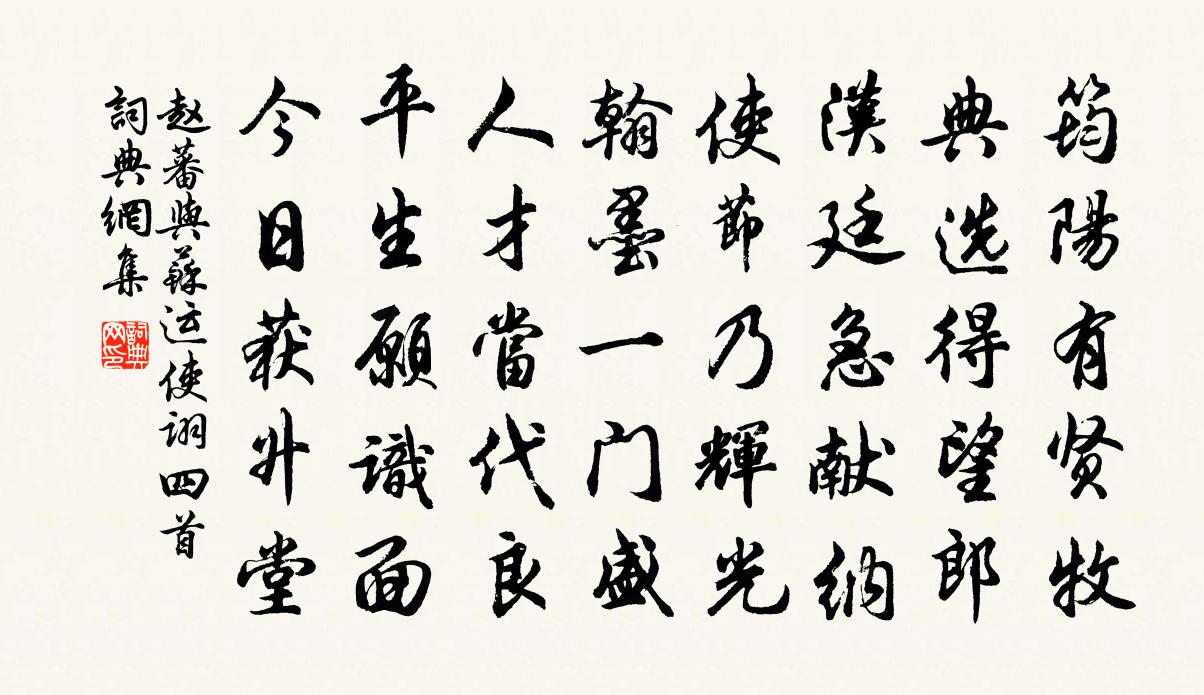 筠陽有贤牧
典选得望郎
漢廷急献纳
使節乃輝光
翰墨一门盛
人才當代良
平生願識面
今日获升堂
赵蕃與蘇运使詡四首
詞典網集
詞典网印